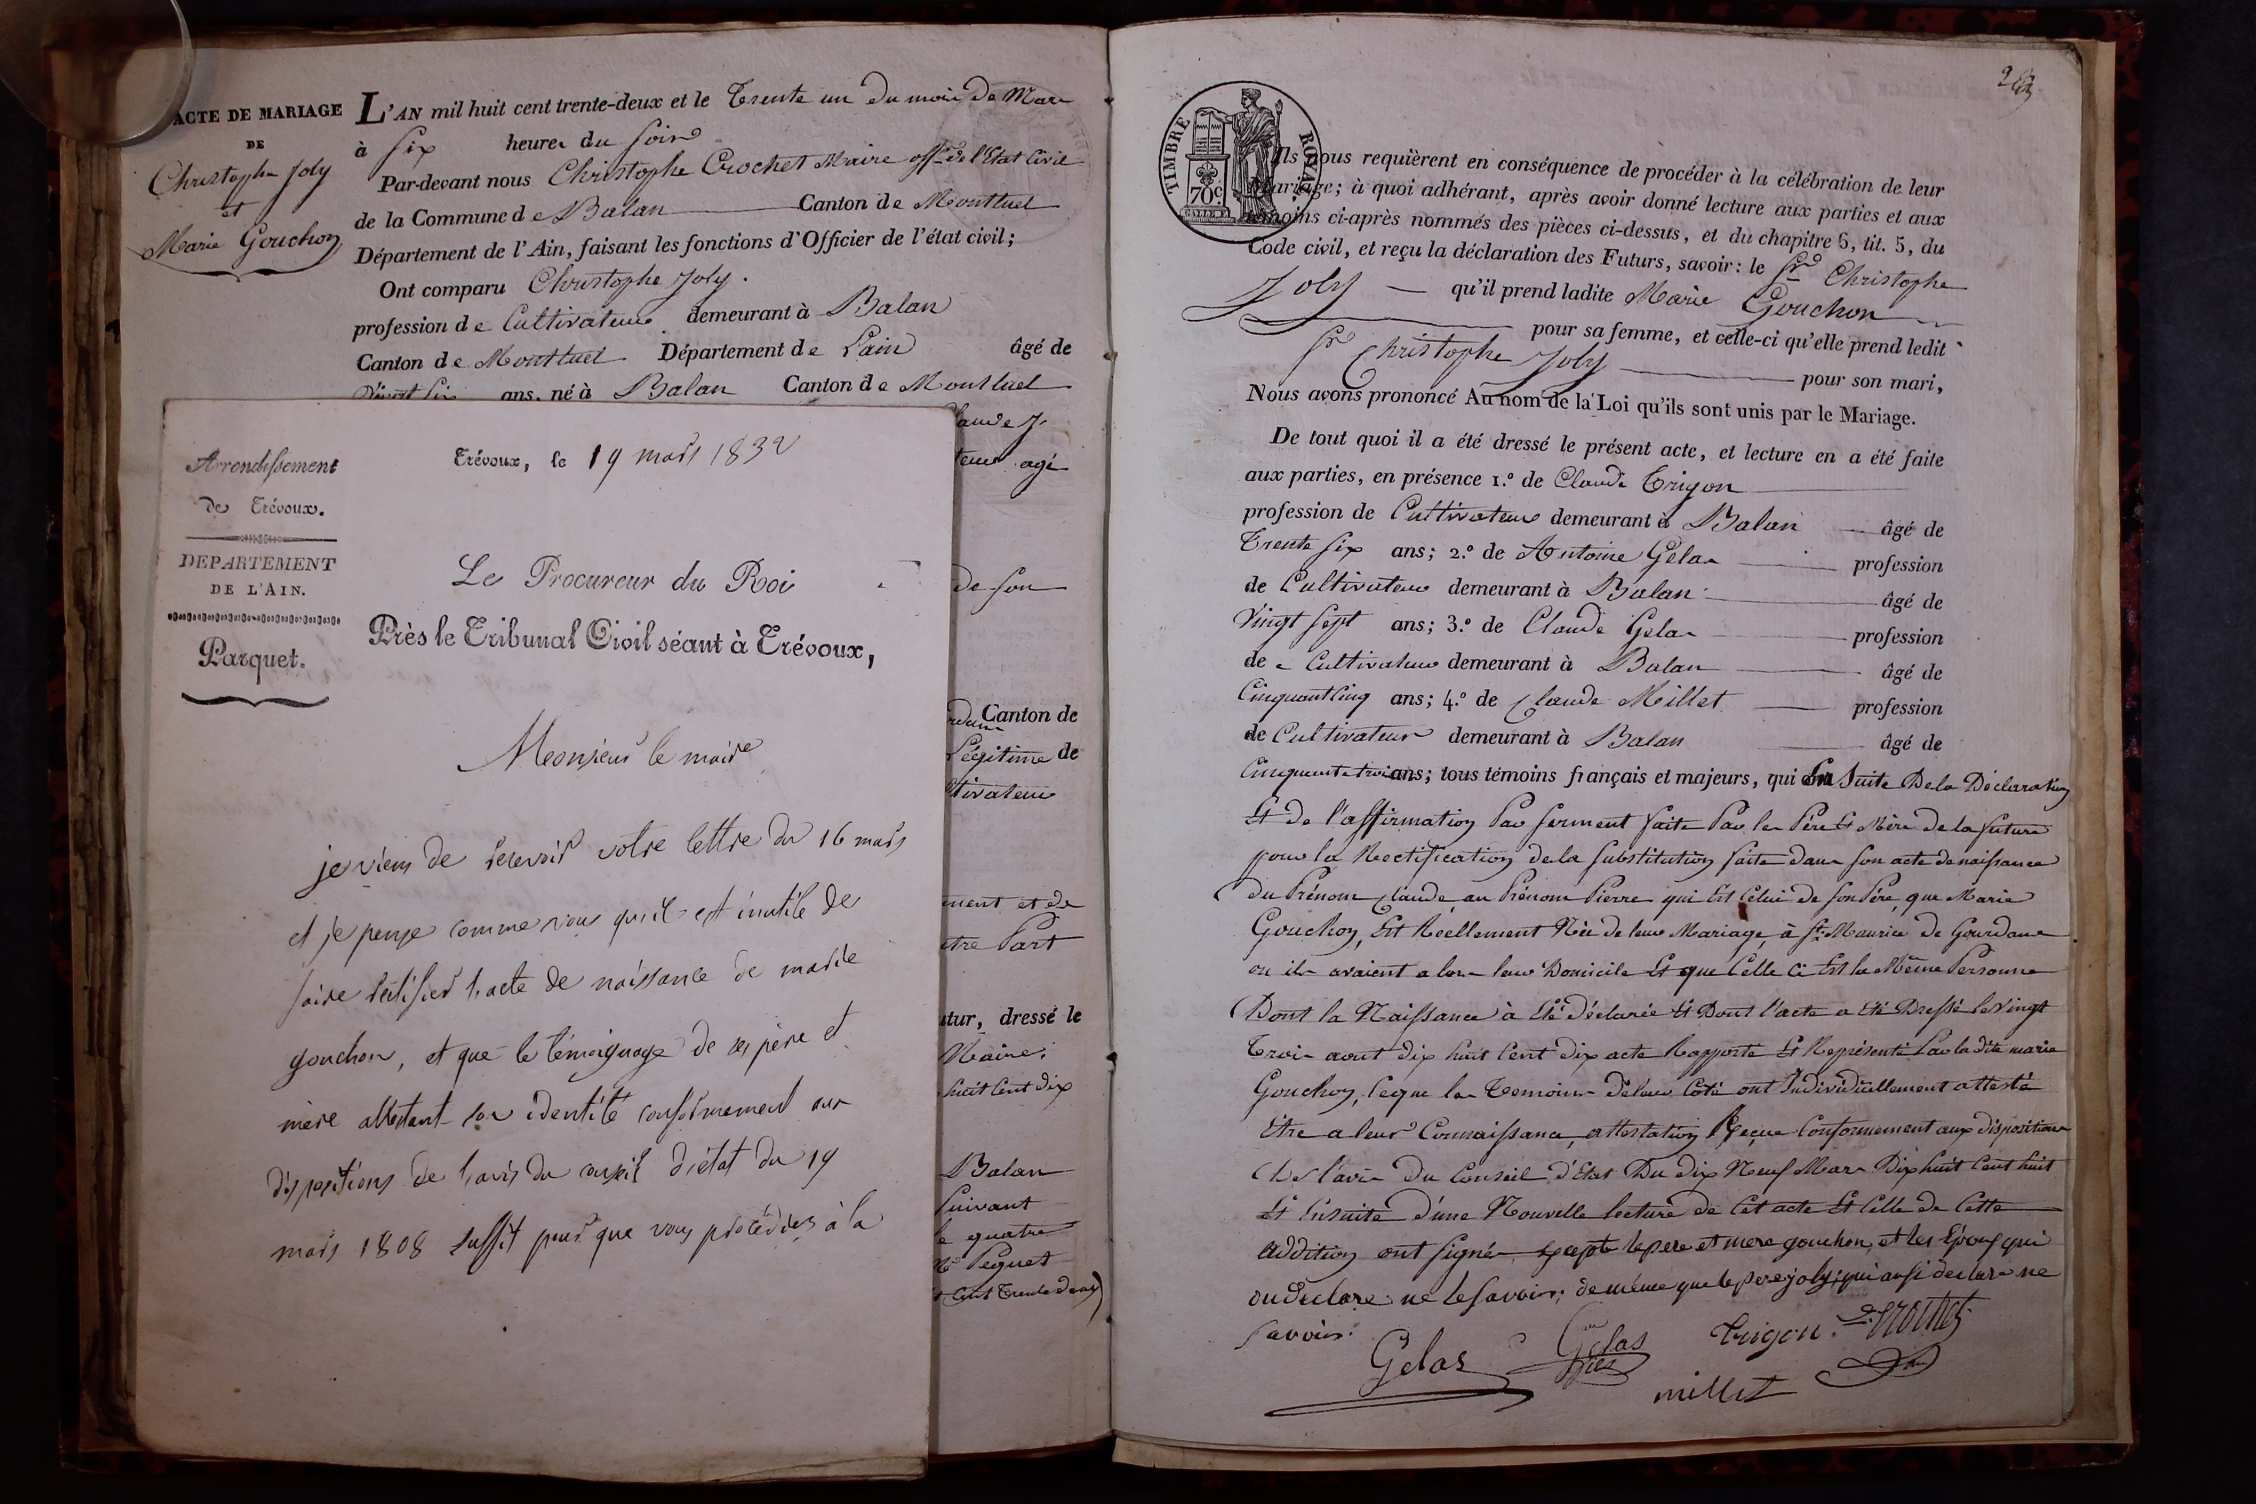 ACTE DE MARIAGE
DE
Christophe Joly
et
Marie Gouchon
L'AN mil huit cent trente-deux et le Trente un du mois de Mars
à Six heures du Soir
Par-devant nous Christophe Crochet Maire off. de l'Etat Civil
de la Commune de Balan Canton de Montluel
Département de l'Ain, faisant les fonctions d'Officier de l'état civil;
Ont comparu Christophe Joly.
profession de Cultivateur demeurant à Balan
Canton de Montluel Département de Lain âgé de
Vingt Six ans, né à Balan Canton de Montluel
laude J.
teur agé
de Son
Canton de
Légitime de
tivateur
ment et de
tre Part
tur, dressé le
Maire,
huit Cent dix
Balan
Suivant
le quatre
Peguet
Cent Trente deux)
Arrondissement
de Trévoux.
DEPARTEMENT
DE L'AIN.
Parquet.
Trévoux, le 19 mars 1832
Le Procureur du Roi
Près le Tribunal Civil séant à Trévoux,
Monsieur le maire
je viens de recevoir votre lettre du 16 mars
et je pense comme vous qu'il est inutile de
faire rectifier l'acte de naissance de marie
gouchon, et que le témoignage de ses père et
mère attestant son identité conformement aux
dispositions de l'avis du conseil d'état du 19
mars 1808 suffit pour que vous procédiez à la
TIMBRE ROYAL
70c.
Ils nous requièrent en conséquence de procéder à la célébration de leur
mariage; à quoi adhérant, après avoir donné lecture aux parties et aux
témoins ci-après nommés des pièces ci-dessus, et du chapitre 6, tit. 5, du
Code civil, et reçu la déclaration des Futurs, savoir: le Sr Christophe
Joly qu'il prend ladite Marie Gouchon
pour sa femme, et celle-ci qu'elle prend ledit
Sr Christophe Joly pour son mari,
Nous avons prononcé Au nom de la Loi qu'ils sont unis par le Mariage.
De tout quoi il a été dressé le présent acte, et lecture en a été faite
aux parties, en présence 1.º de Claude Trigon
profession de Cultivateur demeurant à Balan âgé de
Trente Six ans; 2.º de Antoine Gelas profession
de Cultivateur demeurant à Balan âgé de
Vingt Sept ans; 3.º de Claude Gelas profession
de Cultivateur demeurant à Balan âgé de
Cinquantcinq ans; 4.º de Claude Millet profession
de Cultivateur demeurant à Balan âgé de
Cinquante trois ans; tous témoins français et majeurs, qui En Suite De la Déclaration
Et de l'affirmation Par Serment faite Par les Père Et Mère de la future
pour la Rectification de la Substitution faite dans Son acte de naissance
du Prénom Claude, au Prénom Pierre qui Est Celui de Son Père, que Marie
Gouchon, Est Réellement Née de leur Mariage, à St. Maurice de Gourdans
ou ils avaient alors leur Domicile Et que Celle Ci Est la Même Personne
Dont la Naissance à Eté déclarée Et Dont l'acte a Eté Dressé le Vingt
Trois aout dix huit Cent dix acte Rapporté Et Représenté Par la dite marie
Gouchon, Ceque les Temoins de leur Coté ont Individuellement attesté
Etre a leur Connaissance, attestation Reçue Conformement aux dispositions
De l'avis du Conseil d'Etat Du dix Neuf Mars Dix huit Cent huit
Et Ensuite d'une Nouvelle lecture de Cet acte Et Celle de Cette
addition ont Signé Excepte le pere et mere gouchon, et les Epoux qui
ou declare ne le Savoir; de même que le pere joly; qui aussi declare ne
Savoir.
Gelas Gelas Trigon. Crochet
millet